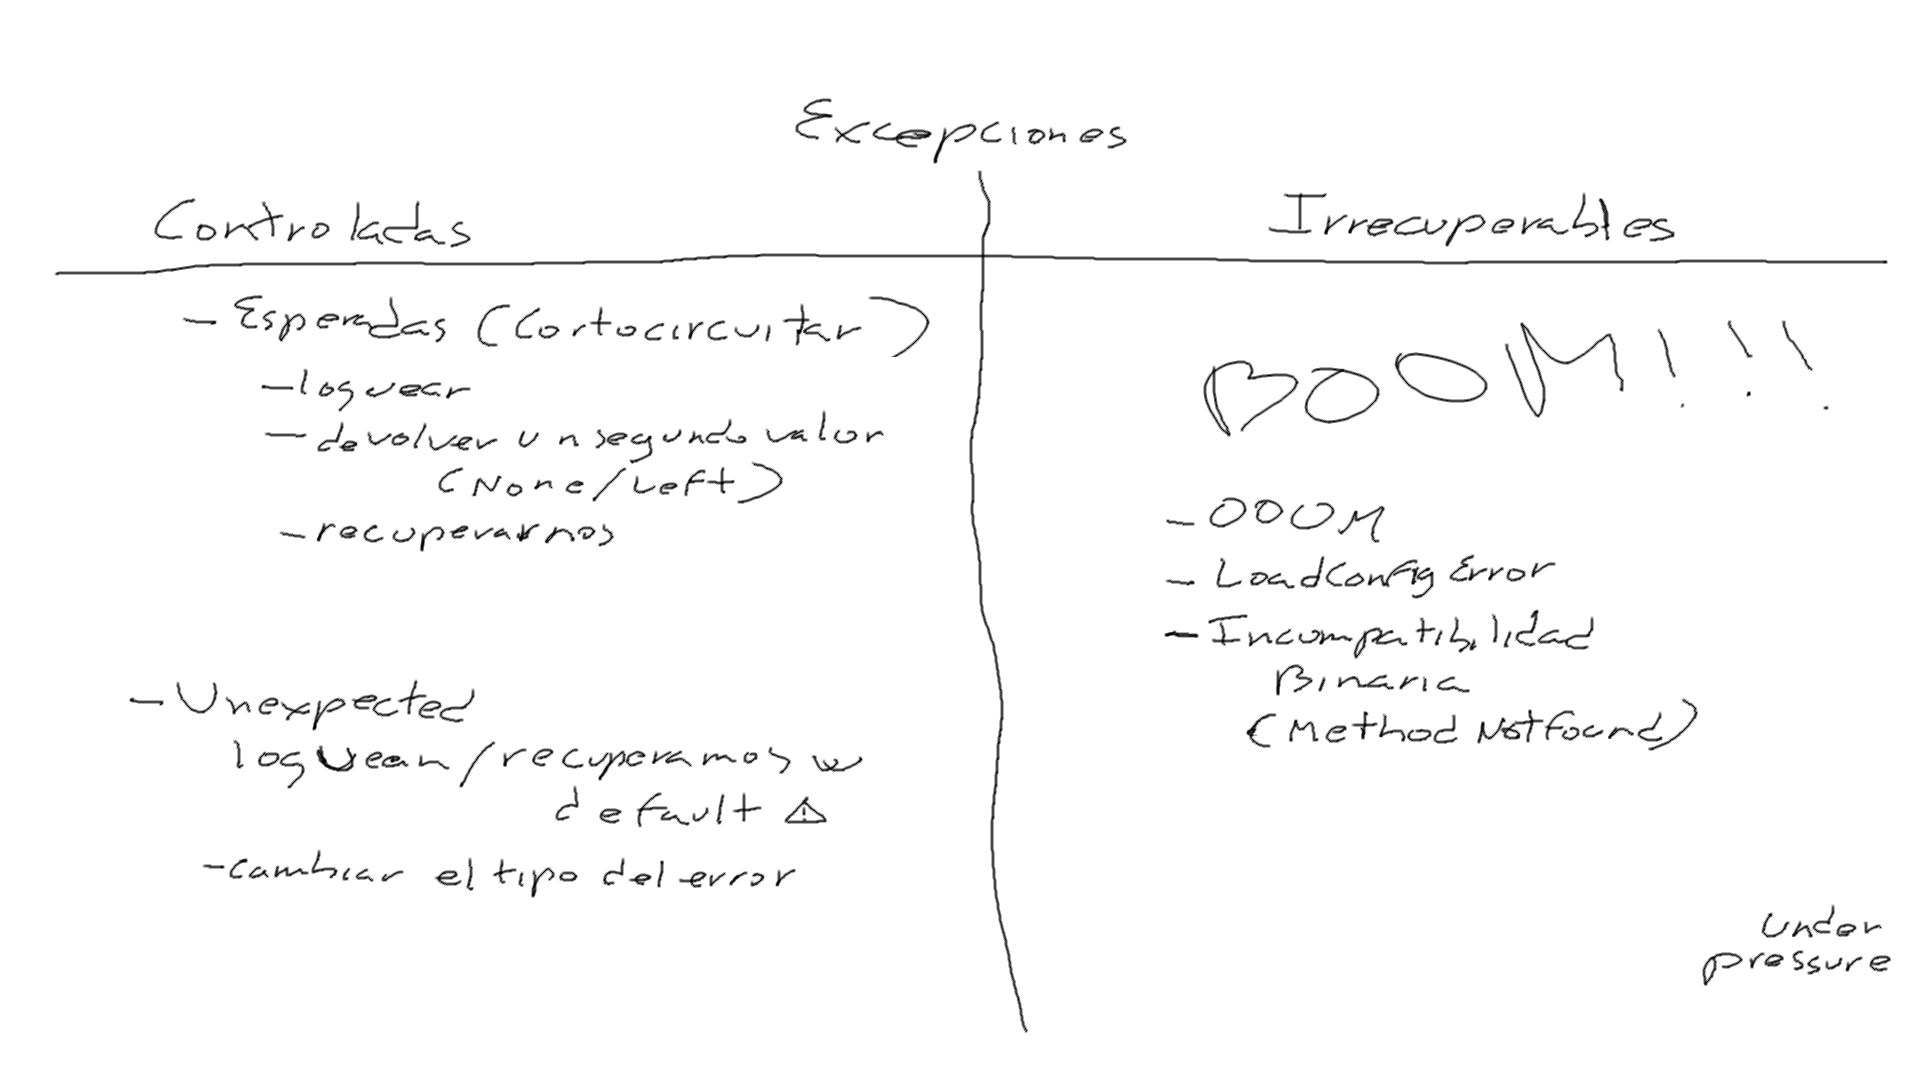 Excepciones
Controladas
- Esperadas (Cortocircuitar)
- loguear
- devolver un segundo valor
(None/Left)
- recuperarnos
- Unexpected
loguean/recuperamos w
default ⚠
- cambiar el tipo del error
Irrecuperables
BOOM!!!
- OOOM
- LoadConfig Error
- Incompatibilidad
Binaria
(Method Not found)
under
pressure